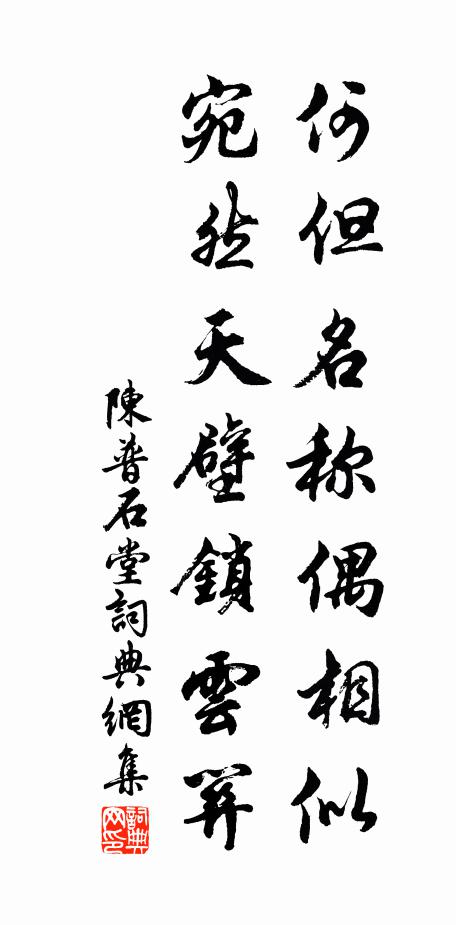 何但名称偶相似
宛然天壁鎖雲
陳普石堂詞典網集
詞典
网印